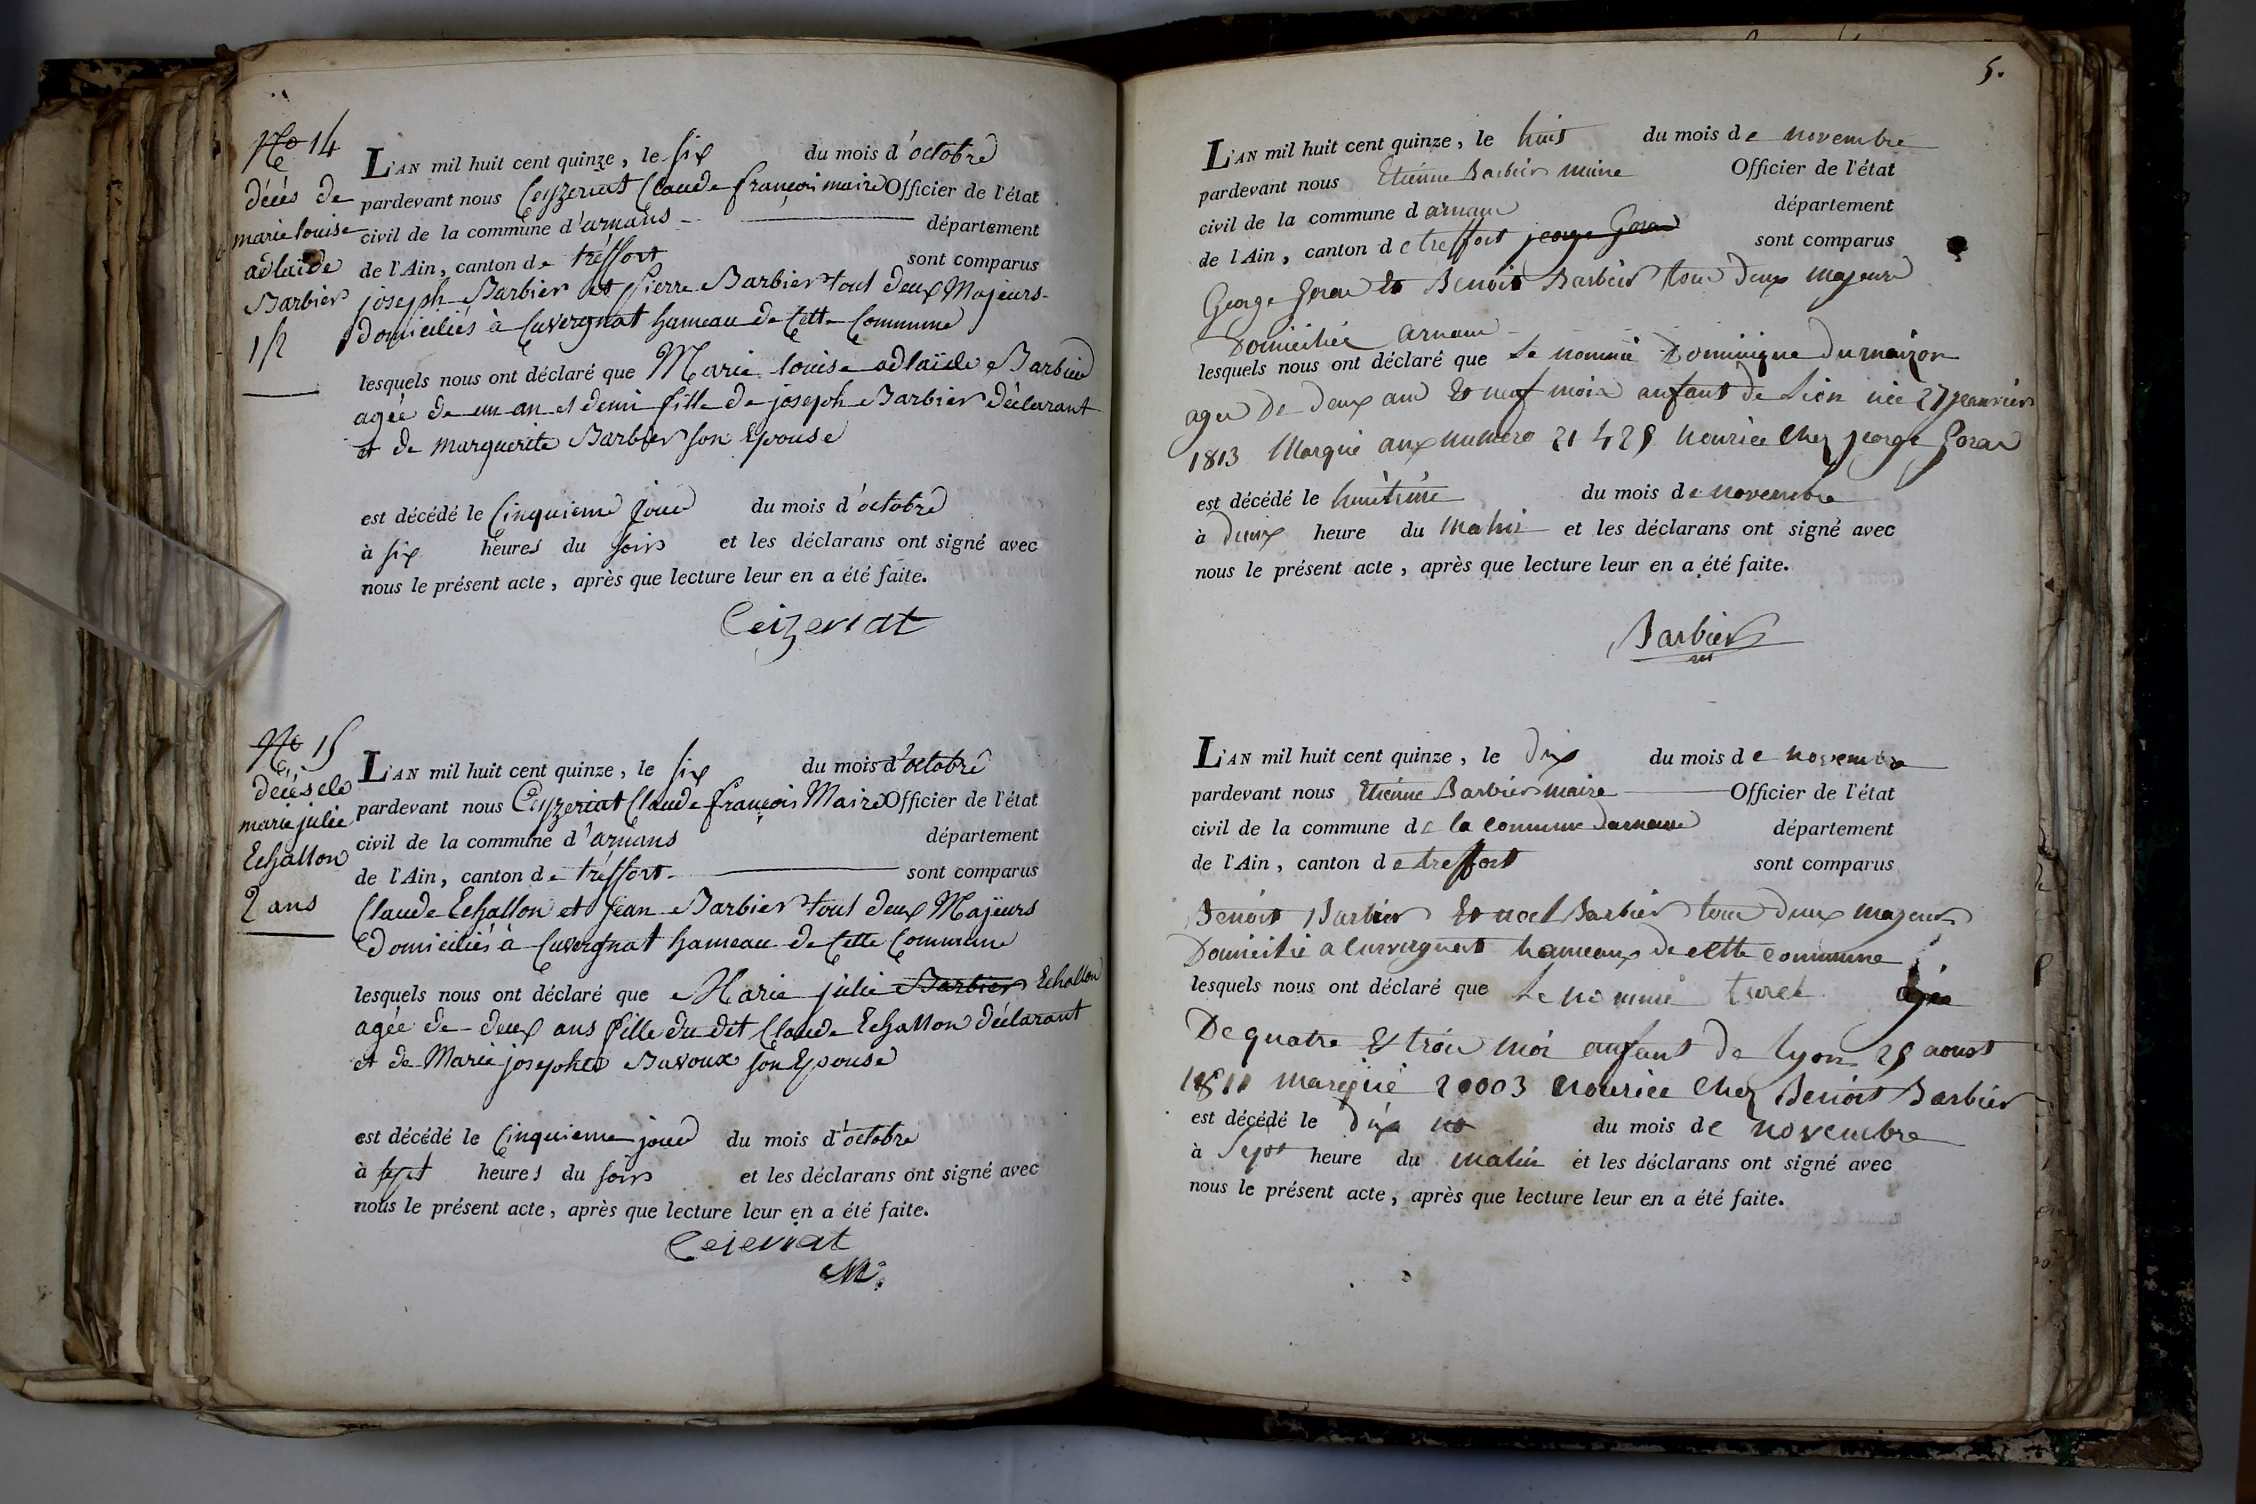 No 14
décés de
marie louise
adlaïde
Barbier
1 1/2
L'AN mil huit cent quinze, le six du mois d'octobre
pardevant nous Ceyzeriat Claude françois maire Officier de l'état
civil de la commune d'arnans département
de l'Ain, canton de tréffort sont comparus
joseph Barbier et Pierre Barbier tout deux Majeurs
domiciliés à Cuvergnat hameau de Cette Commune
lesquels nous ont déclaré que Marie louise adlaïde Barbier
agée de un an et demi fille de joseph Barbier déclarant
et de marguerite Barbier son Epouse
est décédé le Cinquieme jour du mois d'octobre
à six heures du soir et les déclarans ont signé avec
nous le présent acte, après que lecture leur en a été faite.
Ceizeriat
No 15
décés de
marie julie
Echallon
2 ans
L'AN mil huit cent quinze, le six du mois d'octobre
pardevant nous Ceyzeriat Claude françois Maire Officier de l'état
civil de la commune d'arnans département
de l'Ain, canton de tréffort sont comparus
Claude Echallon et jean Barbier tout deux Majeurs
Domiciliés à Cuvergnat hameau de Cette Commune
lesquels nous ont déclaré que Marie julie Barbier Echallon
agée de deux ans fille du dit Claude Echallon déclarant
et de Marie josephte Buvoux son Epouse
est décédé le Cinquieme jour du mois d'octobre
à sept heures du soir et les déclarans ont signé avec
nous le présent acte, après que lecture leur en a été faite.
Ceieriat
M.
5.
L'AN mil huit cent quinze, le huit du mois de novembre
pardevant nous Etienne Barbier maire Officier de l'état
civil de la commune d arnans département
de l'Ain, canton de treffort jeorge Goran sont comparus
George Goran et Benoit Barbier tous deux majeurs
Domiciliés arnans
lesquels nous ont déclaré que Le nommé Dominique Dumaizon
ager De deux ans et neuf mois anfant de Lion née 27 jeanvier
1813 Marqué aux numero 21429 nourice Chez jeorge Goran
est décédé le huitième du mois de novembre
à deux heure du Matin et les déclarans ont signé avec
nous le présent acte, après que lecture leur en a été faite.
Barbier
L'AN mil huit cent quinze, le dix du mois de novembre
pardevant nous Etienne Barbier maire Officier de l'état
civil de la commune de la commune darnans département
de l'Ain, canton de treffort sont comparus
Benoit Barbier Et noel Barbier tous deux majeurs
Domicilié a Cuvergnat hameaux de cette commune
lesquels nous ont déclaré que Le nommé agée
De quatre Et trois moi anfant de Lyon 29 aoust
1811 marqué 20003 nourice Chez Benoit Barbier
est décédé le dix du mois de novembre
à Sept heure du matin et les déclarans ont signé avec
nous le présent acte, après que lecture leur en a été faite.